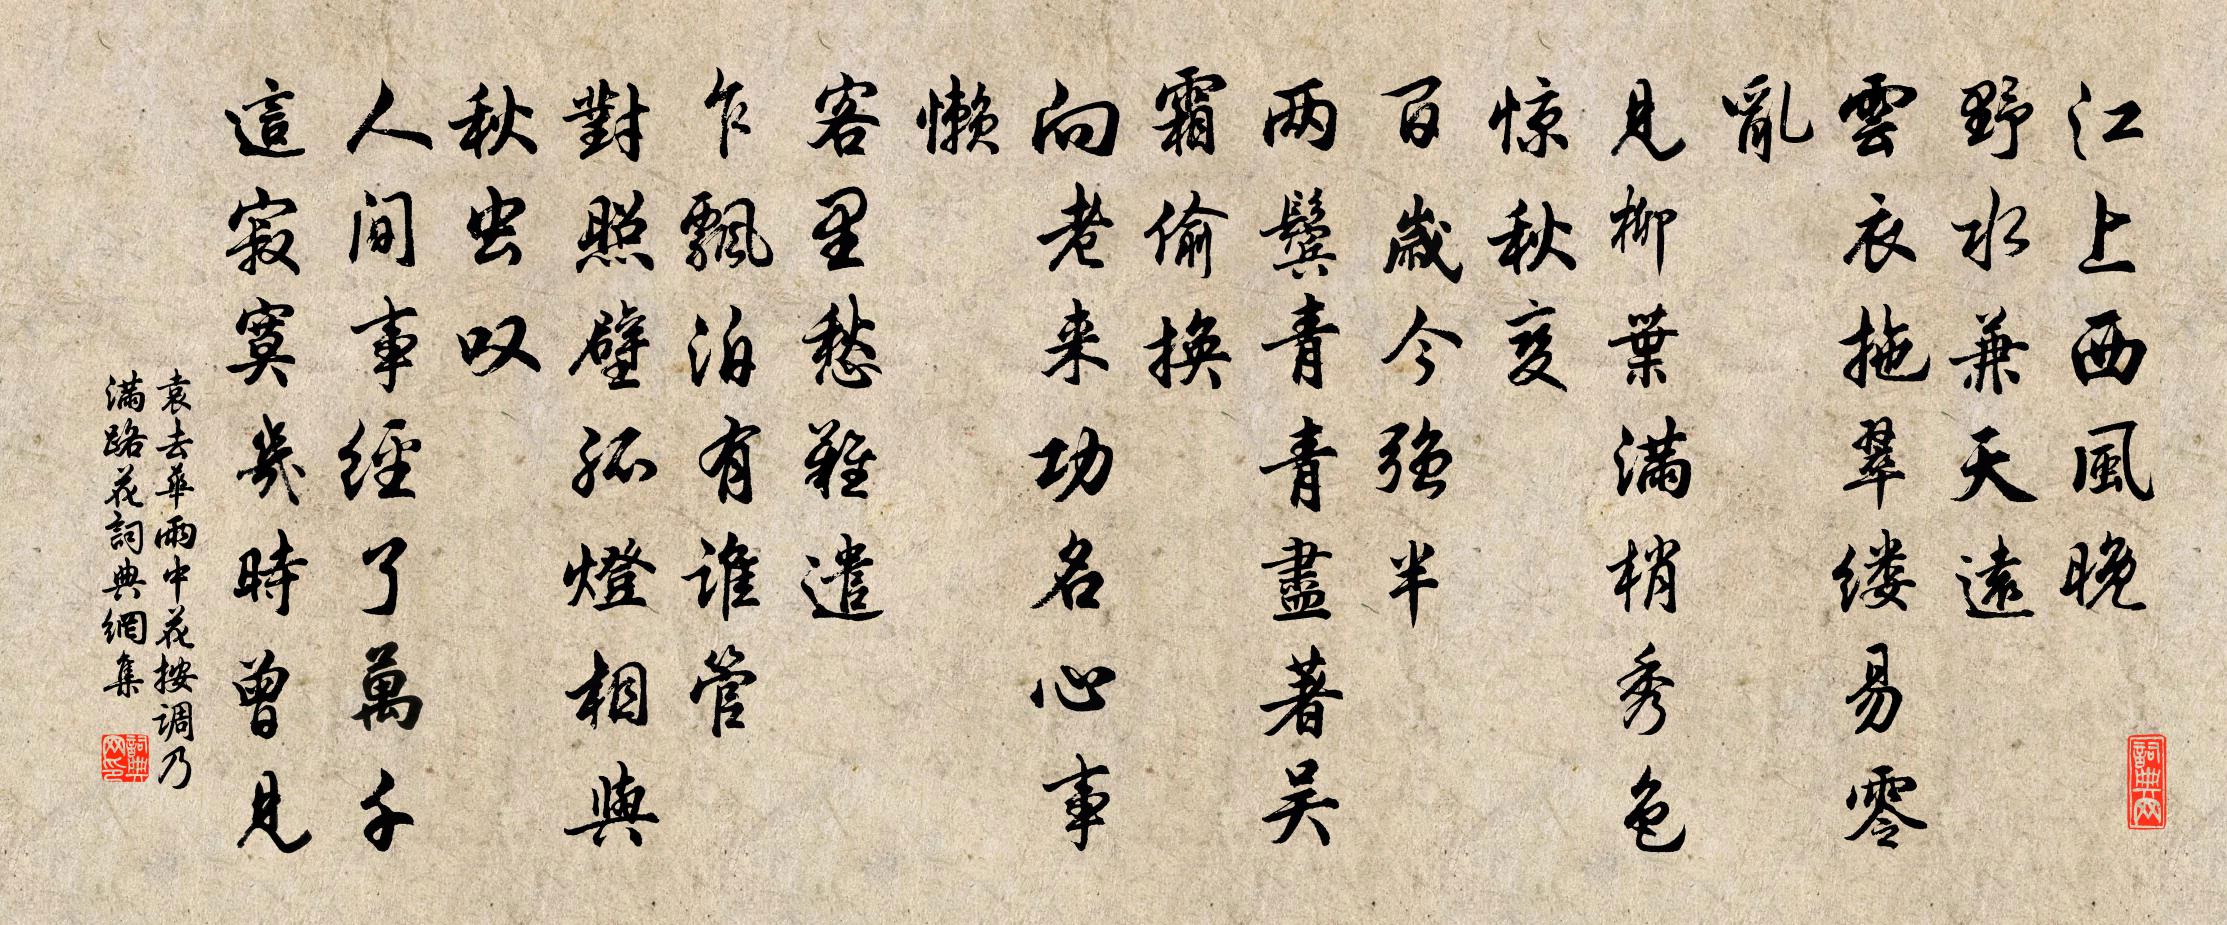 江上西風晚
野水兼天遠
雲衣拖翠缕易零
亂
見柳葉滿梢秀色
惊秋变
百歲今强半
两鬓青青盡著吴
霜偷换
向老来功名心事
懒
客里愁難遣
乍飄泊有谁管
對照壁孤燈相與
秋虫叹
人间事經了萬千
這寂寞幾時曾見
袁去華雨中花按调乃
满路花詞典網集
詞典网印
詞典网